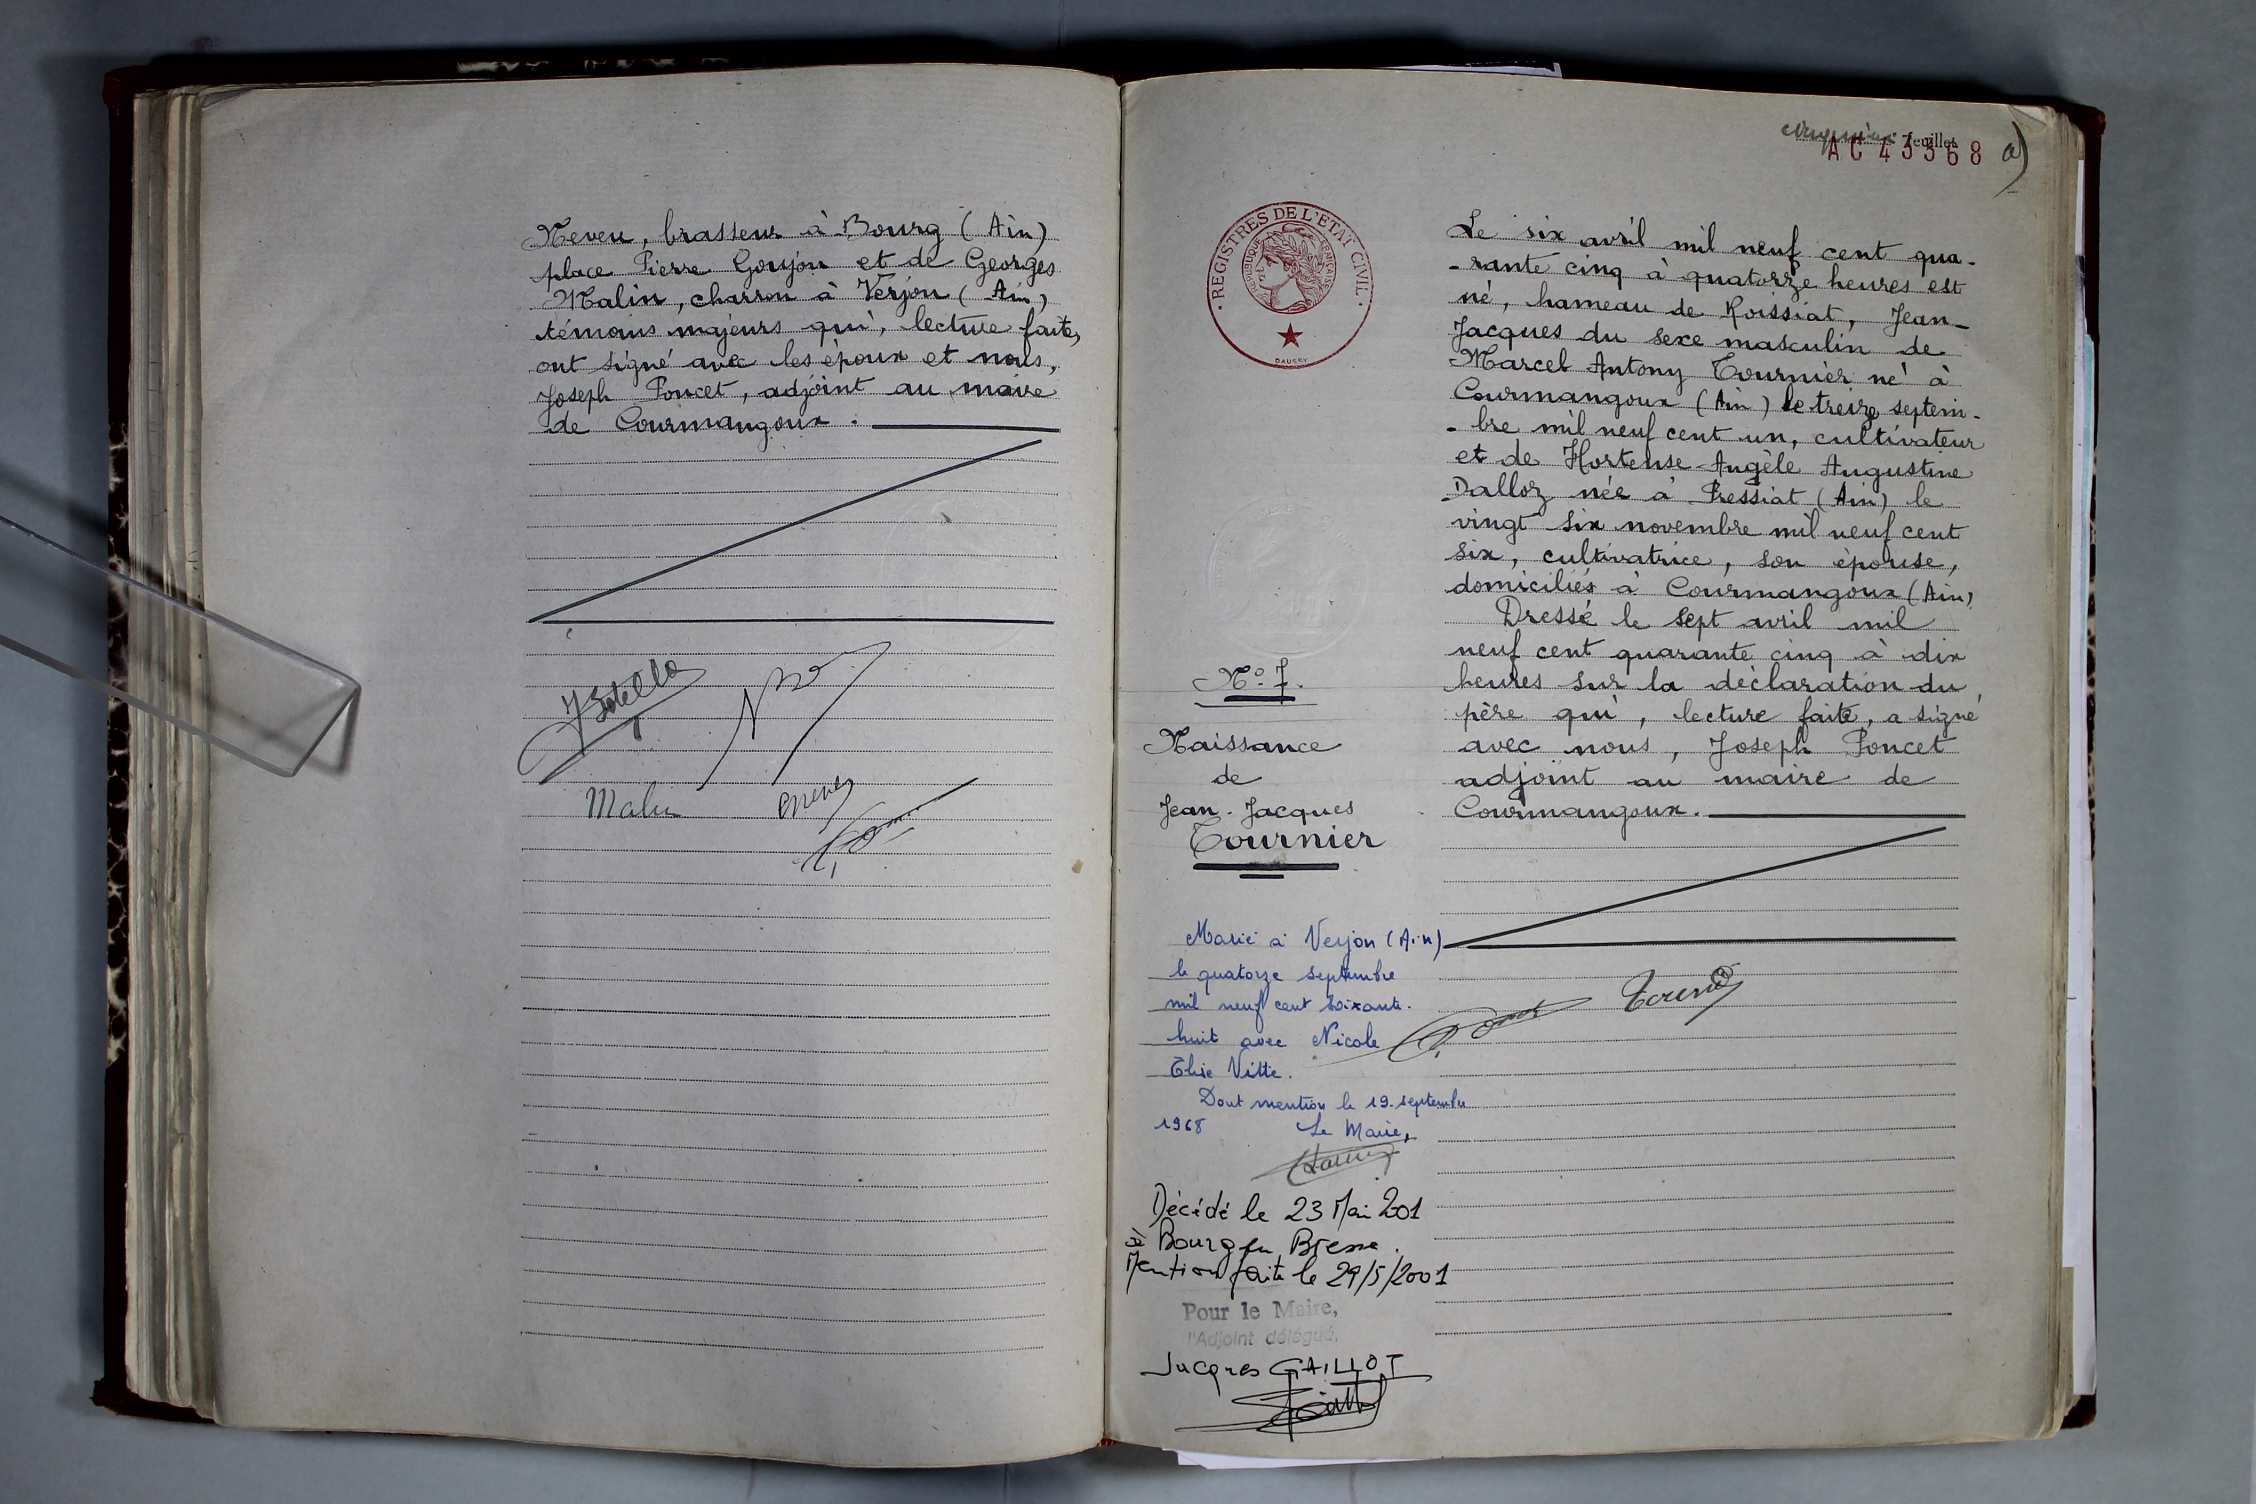 Neveu, brasseur à Bourg (Ain)
place Pierre Goujon et de Georges
Malin, charron à Verjon (Ain)
témoins majeurs qui, lecture faite,
ont signé avec les époux et nous,
Joseph Poncet, adjoint au maire
de Courmangoux.
Malin
Neveu
cinquième feuillet
AC 43368
a)
REGISTRES DE L'ETAT CIVIL
REPUBLIQUE FRANÇAISE
DAUSSY
Le six avril mil neuf cent qua-
-rante cinq à quatorze heures est
né, hameau de Roissiat, Jean-
Jacques du sexe masculin de
Marcel Antony Tournier né à
Courmangoux (Ain) le treize septem-
-bre mil neuf cent un, cultivateur
et de Hortense Angèle Augustine
Dalloz née à Pressiat (Ain) le
vingt six novembre mil neuf cent
six, cultivatrice, son épouse,
domiciliés à Courmangoux (Ain)
Dressé le sept avril mil
neuf cent quarante cinq à dix
heures sur la déclaration du
père qui, lecture faite, a signé
avec nous, Joseph Poncet
adjoint au maire de
Courmangoux.
No 7.
Naissance
de
Jean-Jacques
Tournier
Marié à Verjon (Ain)
le quatorze septembre
mil neuf cent soixante-
huit avec Nicole
Elise Vitte.
Dont mention le 19 septembre
1968 Le Maire,
Décédé le 23 Mai 2001
à Bourg en Bresse.
Mention faite le 29/5/2001
Pour le Maire,
l'Adjoint délégué,
Jacques GAILLOT